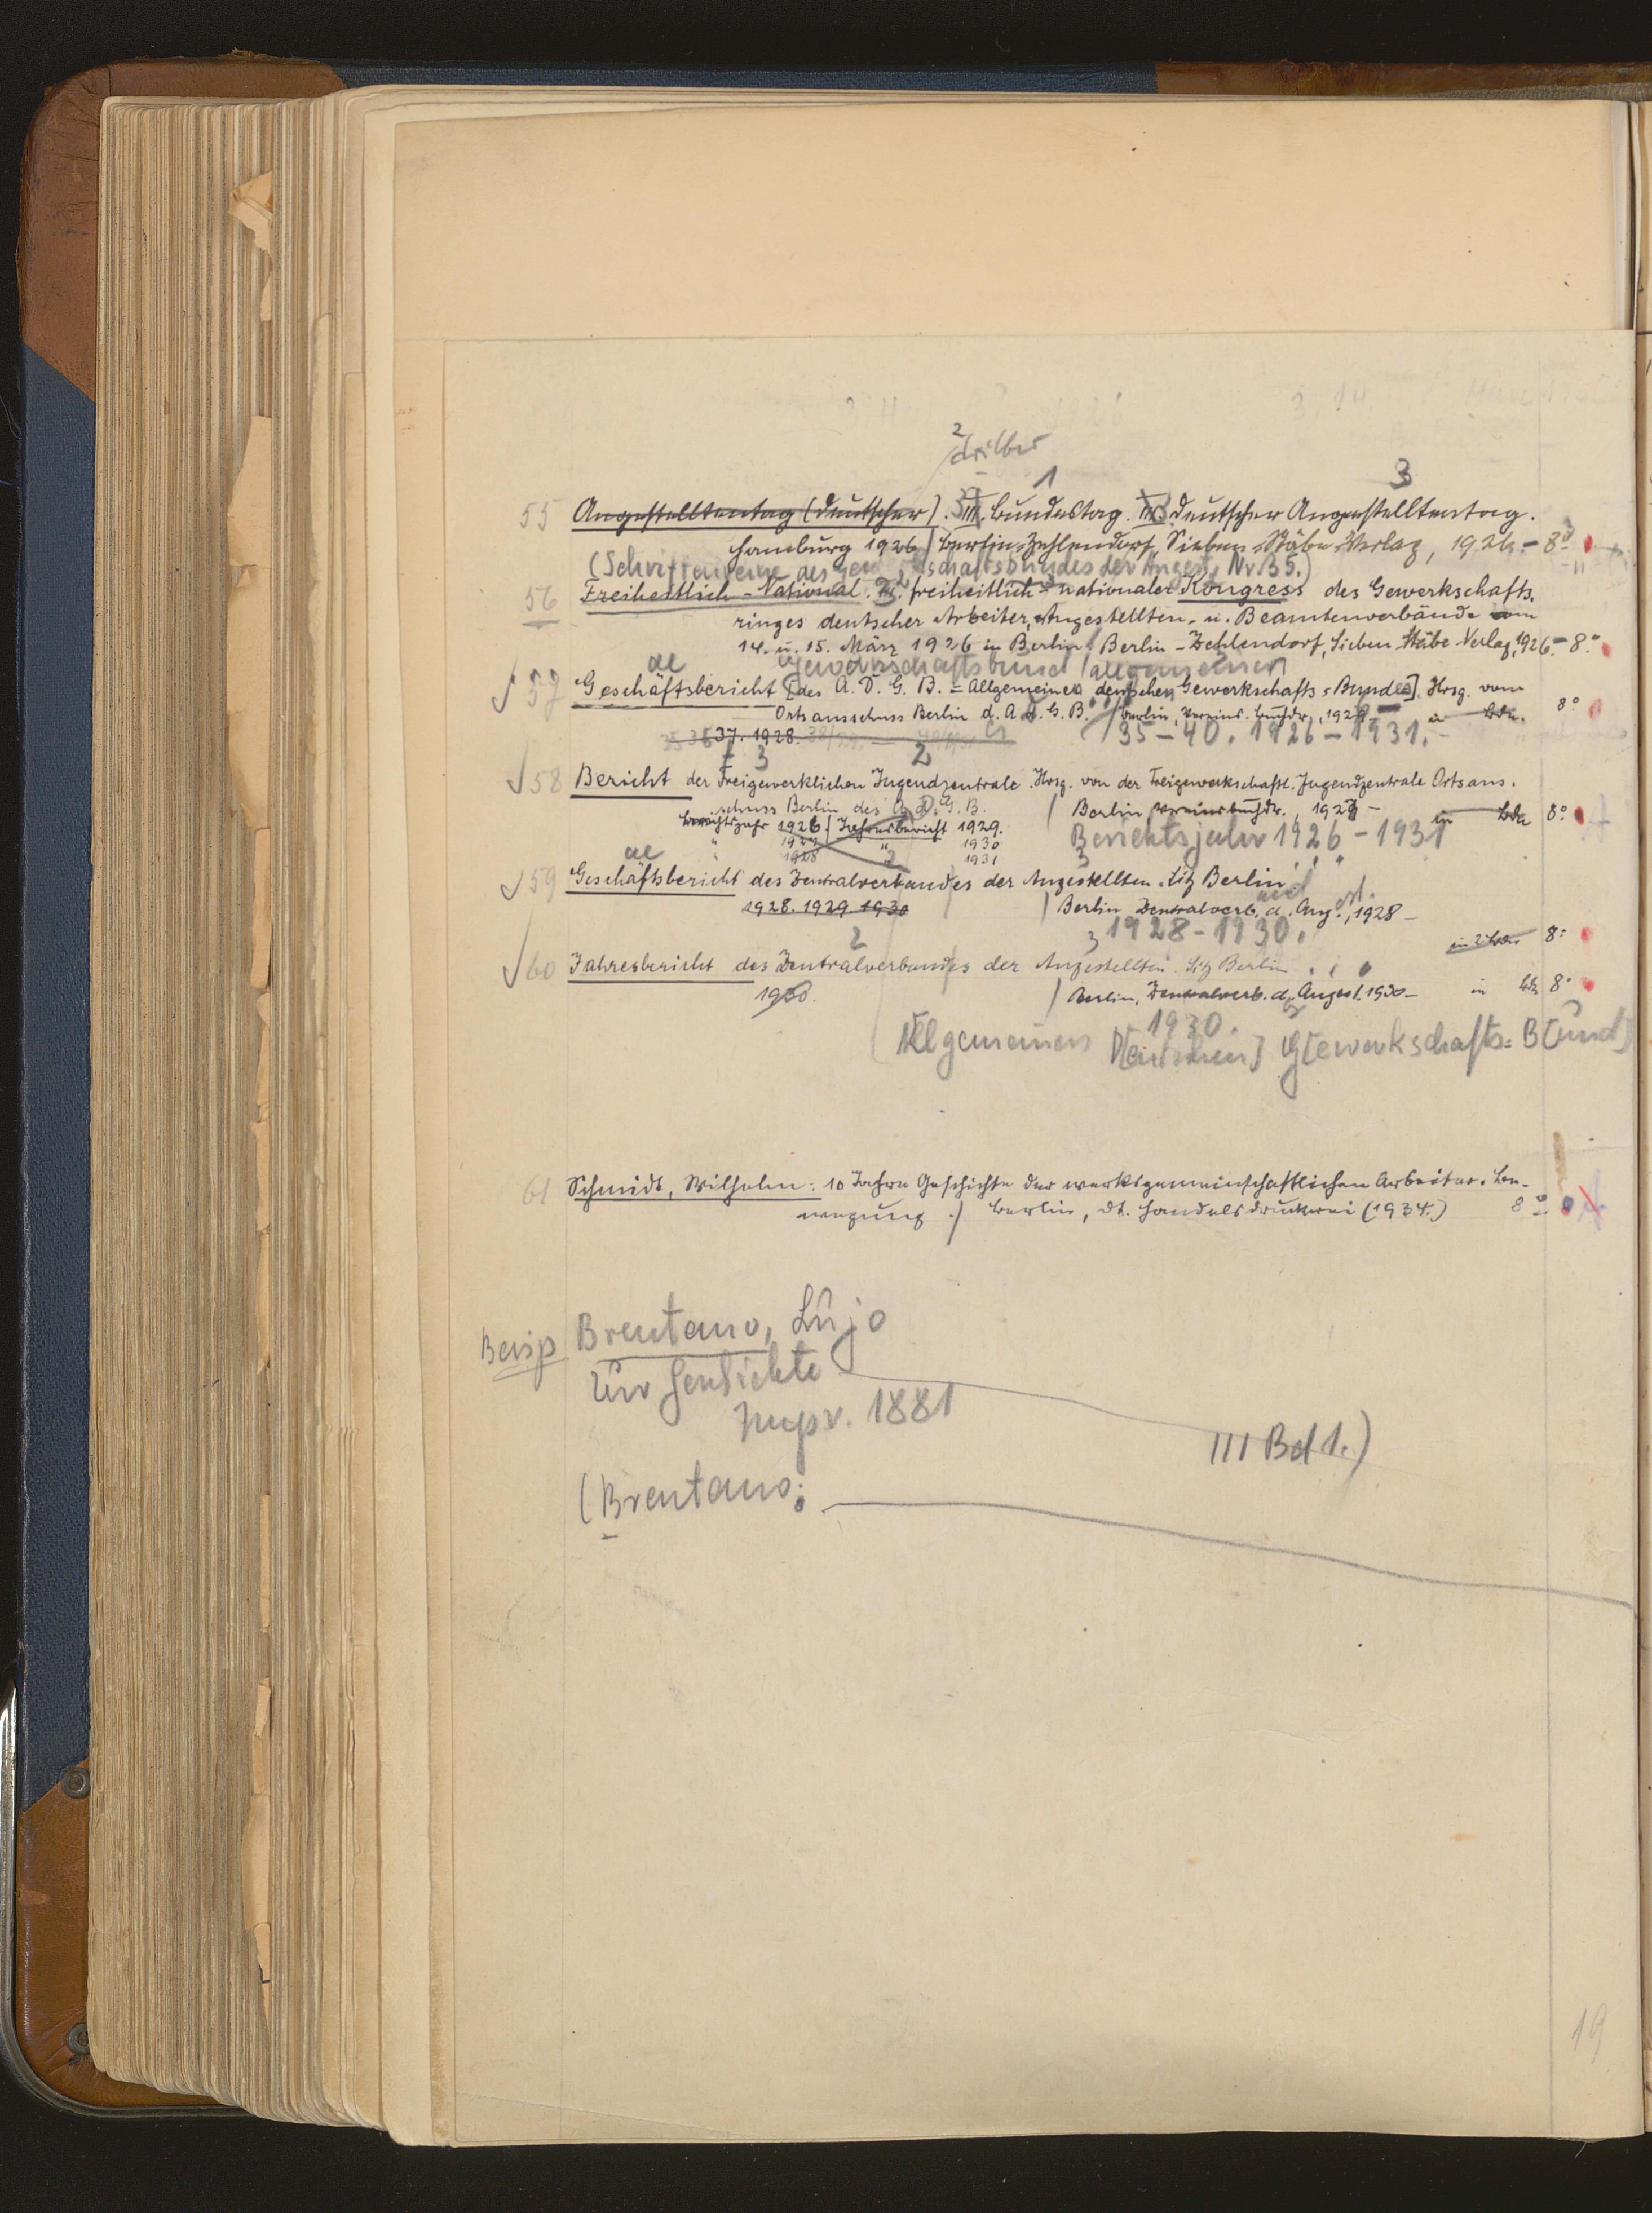 2
dritter
1 3
55 Angestelltentag (deutscher). III. Bundestag. III. deutscher Angestelltentag.
Hamburg 1926 / Berlin-Zehlendorf, Sieben-Stäbe-Verlag, 1926.- 8°
(Schriftenreihe des Gewerkschaftsbundes der Angest. Nr. 35.)
56 Freiheitlich-National. III. freiheitlich-nationaler Kongress des Gewerkschafts-
ringes deutscher Arbeiter, Angestellten- u. Beamtenverbände vom
14. u. 15. März 1926 in Berlin / Berlin-Zehlendorf, Sieben Stäbe-Verlag, 1926.- 8°
ae Gewerkschaftsbund / allgemeinen
57 Geschäftsbericht [des A. D. G. B. = Allgemeinen deutschen Gewerkschafts-Bundes]. Hrsg. vom
Ortsausschuss Berlin d. A. D. G. B. / Berlin, Vereins-Buchdr., 1927- in Bdn. 8°
35 36 37. 1928. 38/29. / 35-40. 1926-1931.-
1 3 2
58 Bericht der Freigewerklichen Jugendzentrale. Hrsg. von der Freigewerkschaftl. Jugendzentrale Ortsaus-
schuss Berlin des A. D. G. B. / Berlin, Vereinsbuchdr., 1927- in Bdn 8°
Berichtsjahr 1926 / Jahresbericht 1929. Berichtsjahr 1926-1931
" 1927 " 1930
" 1928 1931
ae 2 3
59 Geschäftsbericht des Zentralverbandes der Angestellten. Sitz Berlin
1928. 1929 1930 / Berlin, Zentralverb. d. Angest., 1928-
1928-1930. in 2 Bdn 8°
2 3
60 Jahresbericht des Zentralverbandes der Angestellten. Sitz Berlin
1930. / Berlin, Zentralverb. d. Angest. 1930- in Bdn 8°
1930.
Allgemeinen D[eutschen] G[ewerkschafts-B[und]
61 Schmidt, Wilhelm: 10 Jahre Geschichte der werksgemeinschaftlichen Arbeiter-Be-
wegung. / Berlin, Dt. Handelsdruckerei (1934.) 8°
Brentano, Lujo
Zur
1881
III Bd 1.)
(Brentano:
19